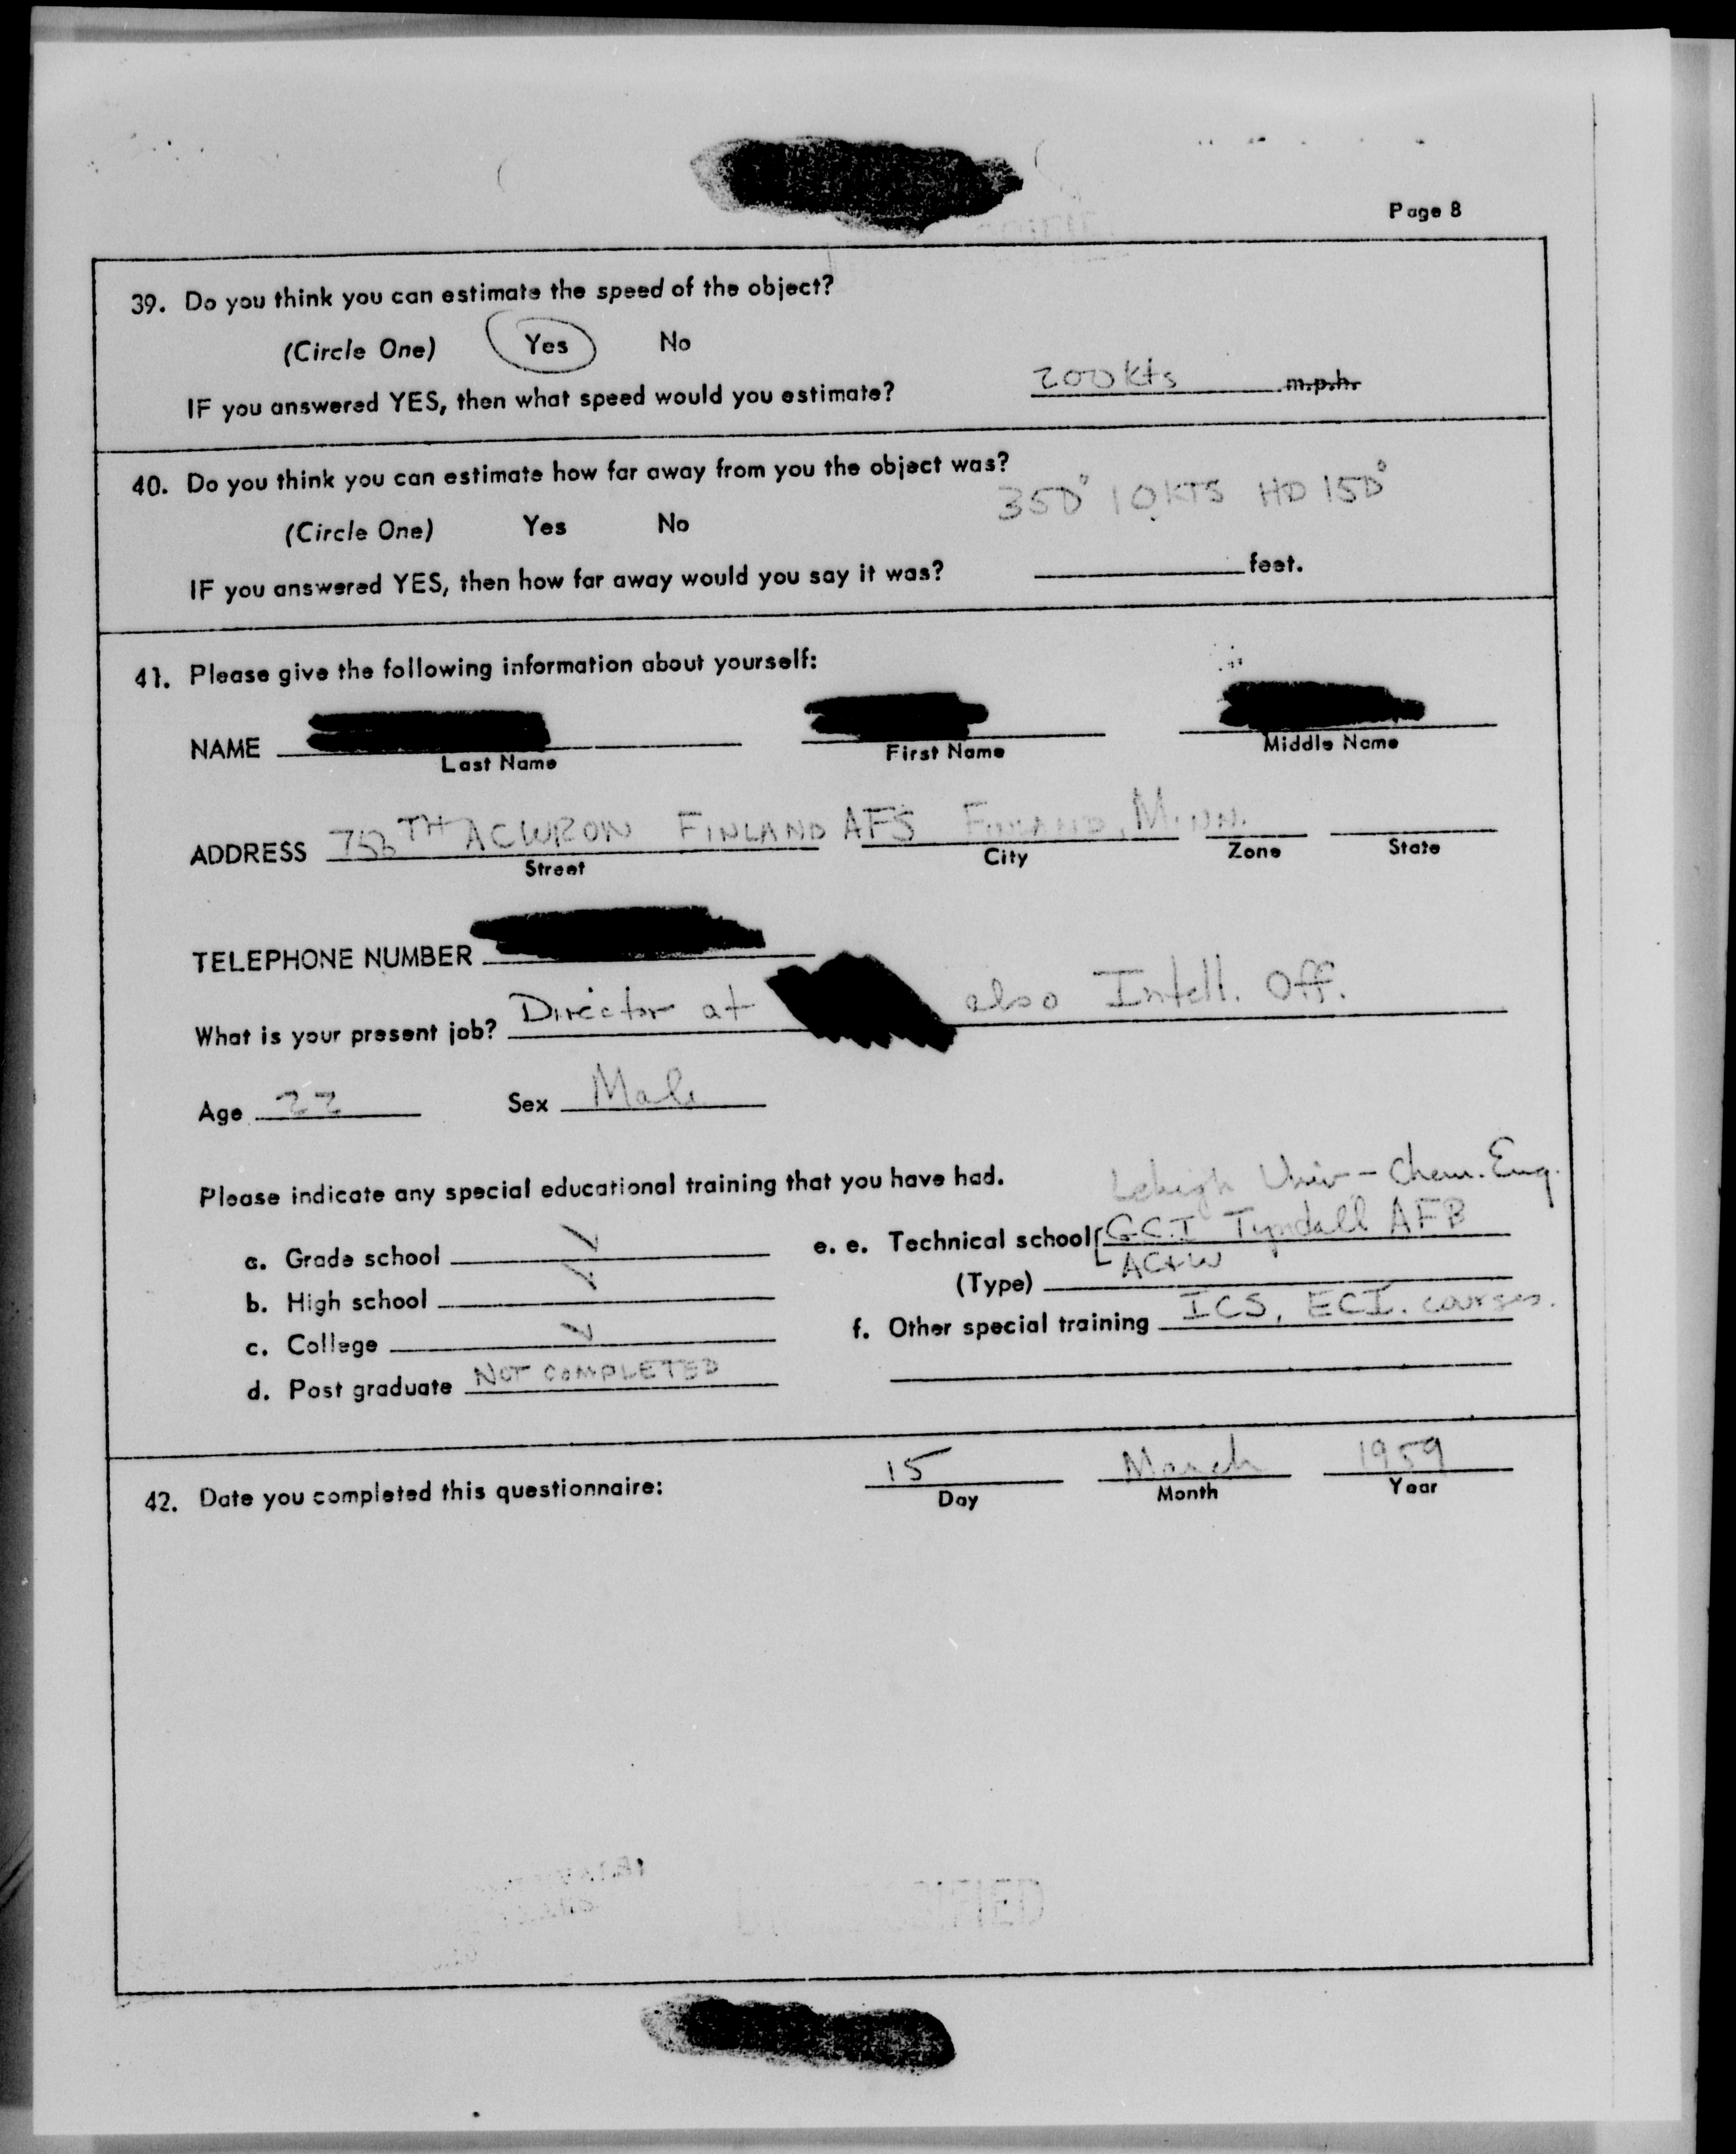 Page 8
39. Do you think you can estimate the speed of the object?
(Circle One) Yes No
IF you answered YES, then what speed would you estimate? 200 kts m.p.h.
40. Do you think you can estimate how far away from you the object was?
350° 10 KTS HD 150°
(Circle One) Yes No
IF you answered YES, then how far away would you say it was? feet.
41. Please give the following information about yourself:
NAME
Last Name First Name Middle Name
ADDRESS 756TH ACWRON FINLAND AFS FINLAND, MINN.
Street City Zone State
TELEPHONE NUMBER
What is your present job? Director at also Intell. Off.
Age 22 Sex Male
Please indicate any special educational training that you have had.
Lehigh Univ - Chem. Eng.
a. Grade school ✓ e. e. Technical school G.C.I Tyndall AFB
(Type) AC&W
b. High school ✓
f. Other special training ICS, ECI. courses.
c. College ✓
d. Post graduate NOT COMPLETED
42. Date you completed this questionnaire: 15 March 1959
Day Month Year